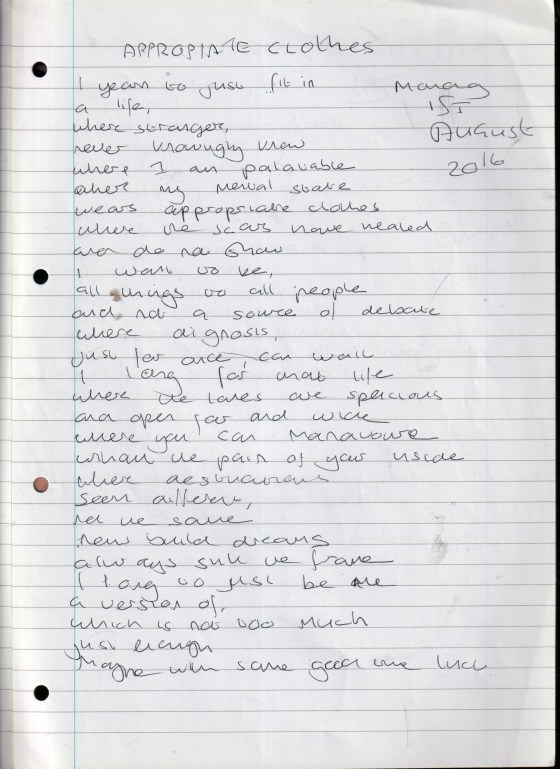 APPROPIATE CLOTHES
I yearn to just fit in
Monday
a life,
1ST
where strangers,
August
never knowingly know
2016
where I am palatable
where my mental state
wears appropriate clothes
where the scars have healed
and do not show
I want to be,
all things to all people
and not a source of debate
where diagnosis,
just for once, can wait
I long for that life
where the lanes are spacious
and open far and wide
where you can
the pain of your inside
where destinations
seem different,
not the same
new build dreams
always suit the frame
I long to just be me
a version of,
which is not too much
just enough
Maybe with some good luck